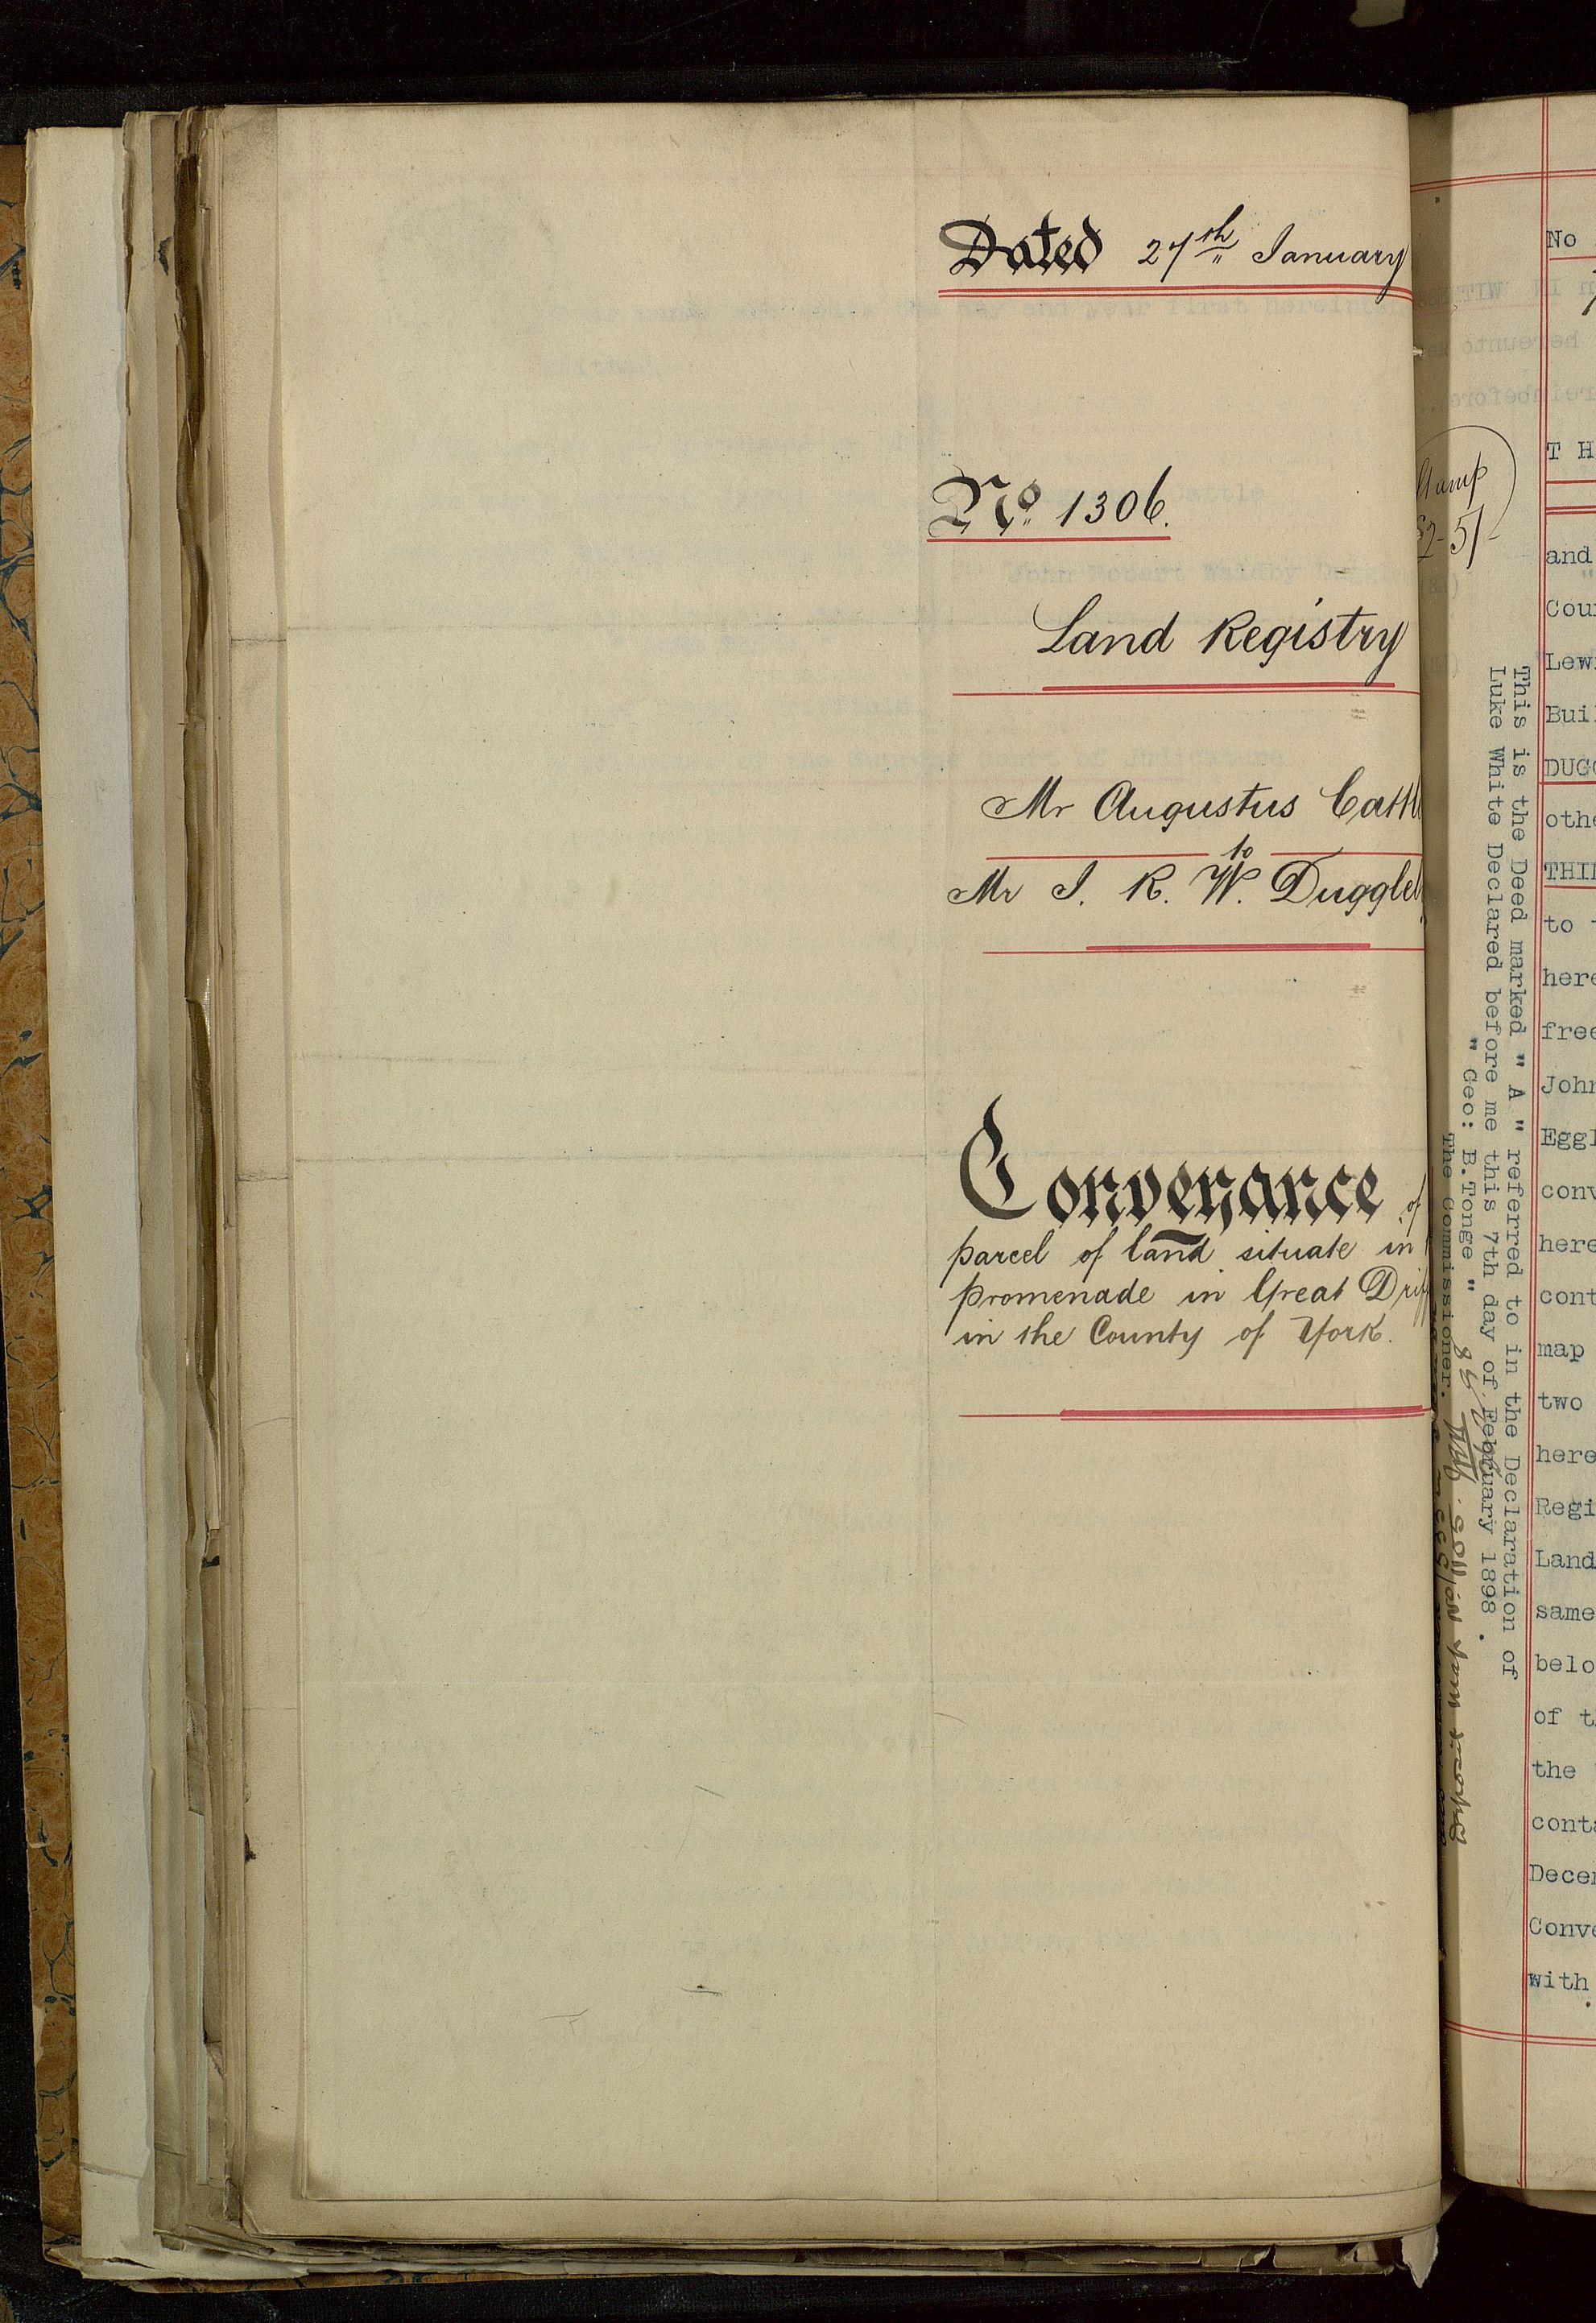 Dated 27th January
No. 1306.
Land Registry
Mr Augustus Cattl
to
Mr J. R. W. Duggleb
Conveyance of
parcel of land situate in
promenade in Great Driff
in the County of York.
Stamp
5/-
This is the Deed marked " A " referred to in the Declaration of
Luke White Declared before me this 7th day of February 1898 .
" Geo: B.Tonge "
The Commissioner.
No
T H
and
Coun
Lew
Buil
DUGG
othe
THIR
to
here
free
John
Eggl
conv
here
cont
map
two
here
Regi
Land
same
belo
of t
the
conta
Decem
Conve
with